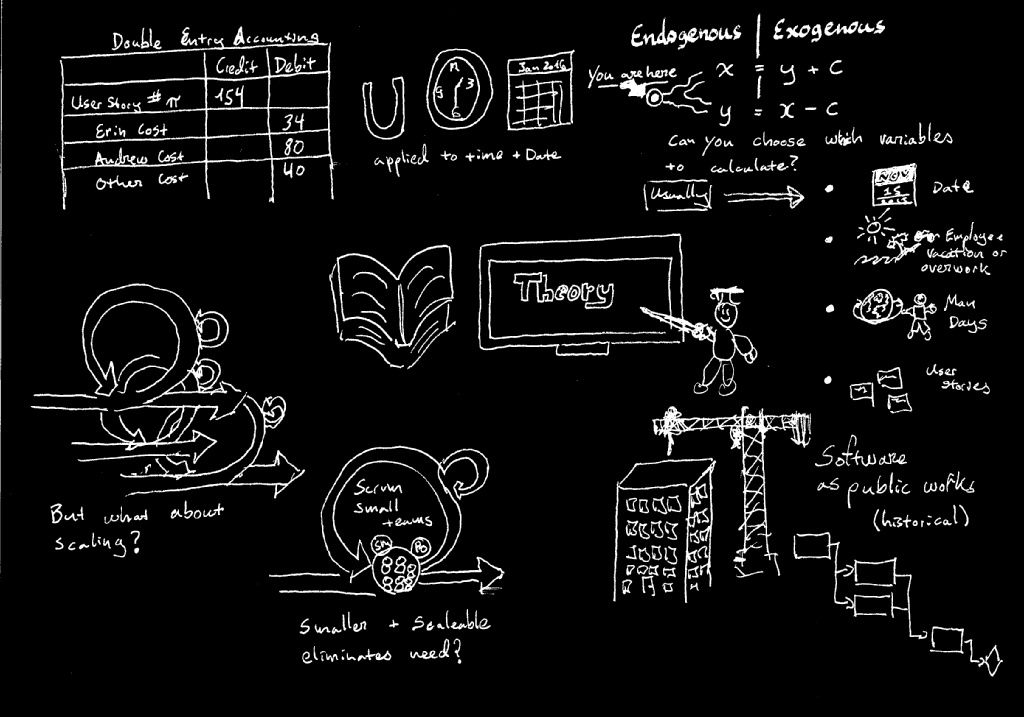 Double Entry Accounting
Credit Debit
User Story # π 154
Erin Cost 34
Andrew Cost 80
Other Cost 40
Jan 2016
applied to time + Date
Endogenous | Exogenous
You are here
x = y + c
y = x - c
Can you choose which variables
to calculate?
Usually
NOV
15
2015
Date
Employee
vacation or
overwork
Man
Days
User
Stories
Theory
But what about
scaling?
Scrum
small
teams
SM
PO
Smaller + Scaleable
eliminates need?
Software
as public works
(historical)